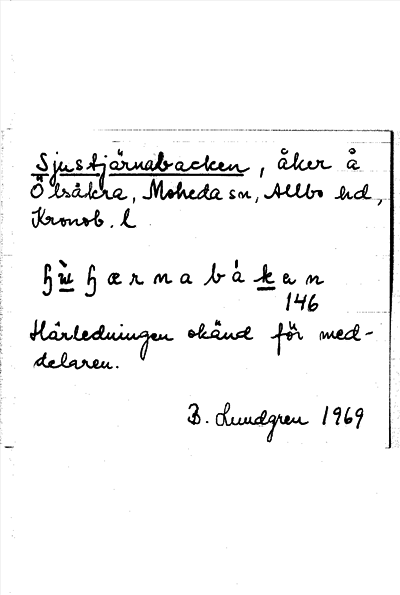 Sjustjärnabacken, åker å
Ölsåkra, Moheda sn, Allbo hd,
Kronob. l
ɧù̱ɧærnabáḵen
146
Härledningen okänd för med-
delaren.
B. Lundgren 1969